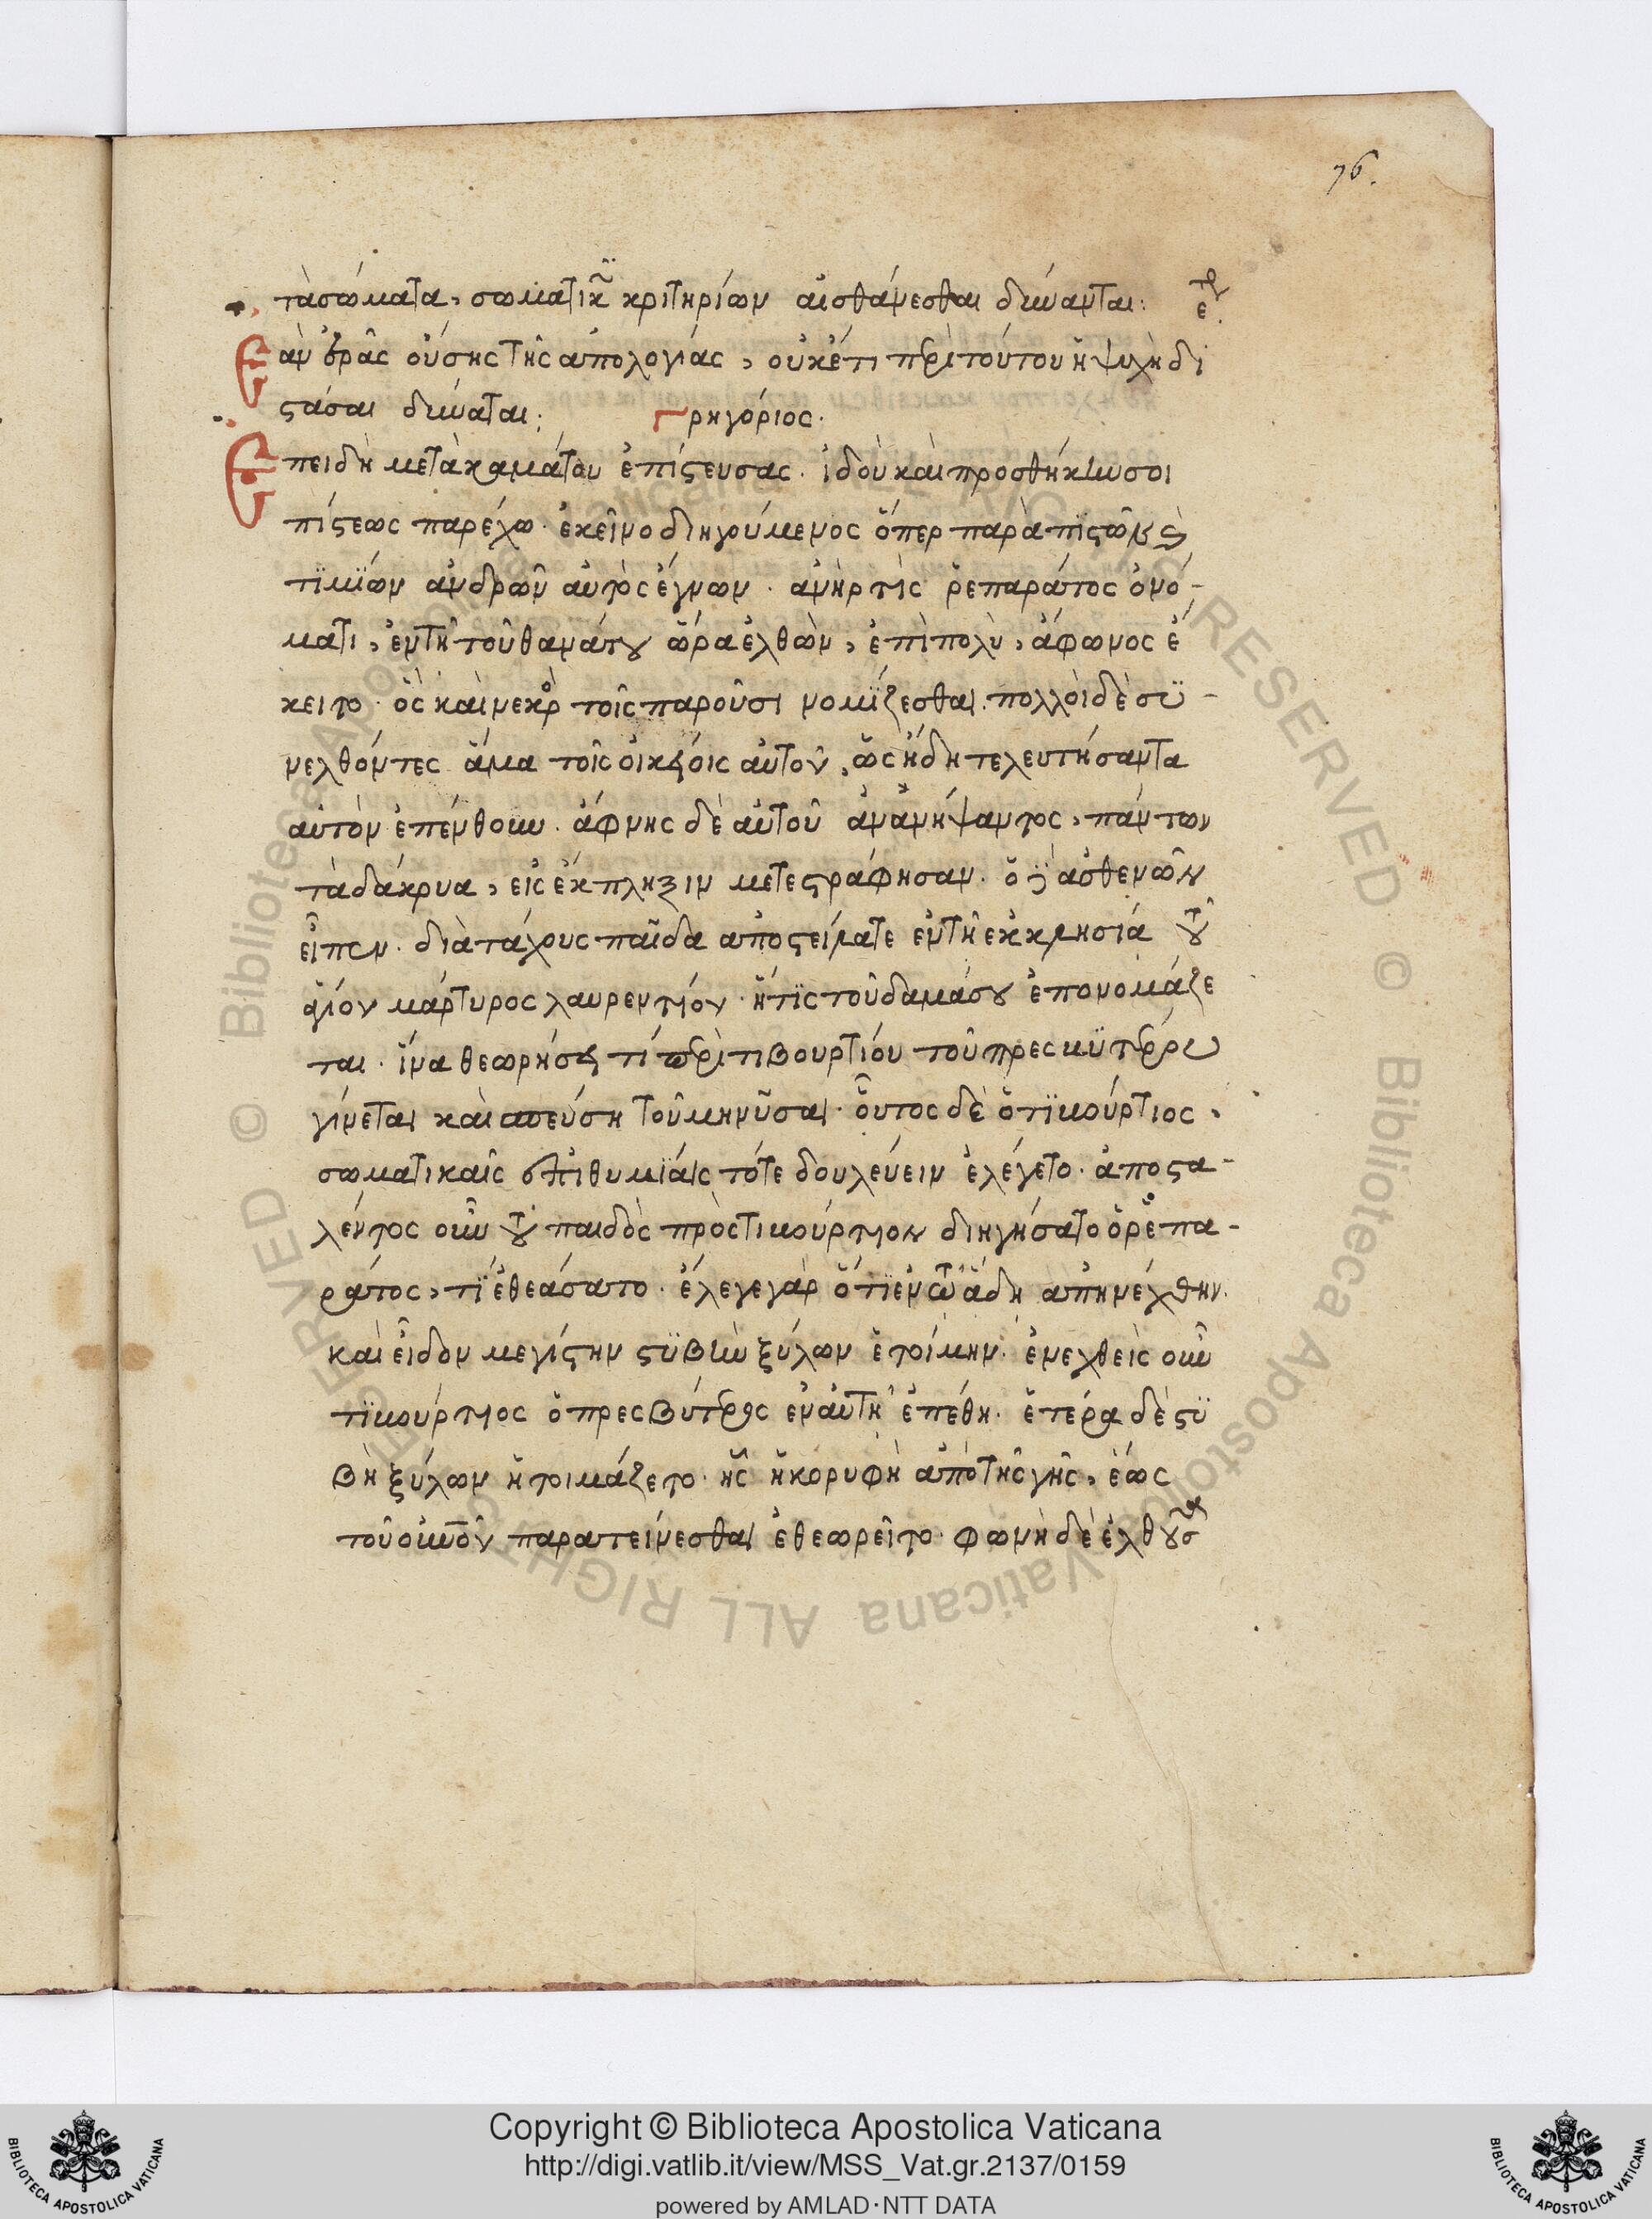 76.
τὰ σώματα, σωματικῶν κριτηρίων αἰσθάνεσθαι δύνανται: πέτρ
Εὰν ὁρᾶς οὔσης τῆς ἀπολογίας, οὐκέτι περὶ τούτου ἡ ψυχὴ δι
στάσαι δύναται; Γρηγόριος.
Επειδὴ μετὰ καμάτου ἐπίστευσας. ἰδοὺ καὶ προσθήκην σοι
πίστεως παρέχω. ἐκεῖνο διηγούμενος ὅπερ παρὰ πϊστῶν καὶ
τϊμϊων ἀνδρῶν αὐτὸς ἔγνων. ἀνὴρ τὶς ῥεπαράτος ὀνό-
ματι, ἐν τῆ τοῦ θανάτου ὥρα ἐλθὼν, ἐπὶ πολὺ, ἄφωνος ἔ
κειτο. ὃς καὶ νεκρὸς τοῖς παροῦσι νομϊζεσθαι. πολλοὶ δὲ συ-
νελθόντες ἅμα τοῖς οἰκείοις αὐτοῦ, ὡς ἤδη τελευτήσαντα
αὐτὸν ἐπένθουν. ἄφνης δὲ αὐτοῦ ἀνανήψαντος, πάντων
τὰ δάκρυα, εἰς ἔκπληξιν μετεστράφησαν. ὁ δὲ ἀσθενῶν
εἶπεν. διὰ τάχους παῖδα ἀποστείλατε ἐν τῆ ἐκκλησία τοῦ
ἁγίου μάρτυρος λαυρεντίου. ἥτϊς τοῦ δαμάσου ἐπονομάζε
ται. ἵνα θεωρήσει τί περὶ τιβουρτίου τοῦ πρεσβϋτέρου
γίνεται καὶ σπεύση τοῦ μηνῦσαι. οὗτος δὲ ὁ τϊβούρτιος,
σωματικαῖς ἐπιθυμϊαις τότε δουλεύειν ἐλέγετο. ἀποστα-
λέντος οὖν τοῦ παιδὸς πρὸς τιβούρτιον διηγήσατο ὁ ῥεπα-
ράτος, τϊ ἐθεάσατο. ἔλεγε γὰρ ὅτϊ ἐν τῶ ἅδη ἀπηνέχθην.
καὶ εἶδον μεγίστην στϋβὴν ξύλων ἑτοίμην. ἐνεχθεὶς οὖν
τϊβούρτιος ὁ πρεσβύτερος ἐν αὐτῆ ἐπέθη. ἑτέρα δὲ στϋ
βὴ ξύλων ἡτοιμάζετο. ἧς ἡ κορυφὴ ἀπὸ τῆς γῆς, ἕως
τοῦ οὐνοῦ παρατείνεσθαι ἐθεωρεῖτο. φωνὴ δὲ ἐλθοῦσα
Copyright © Biblioteca Apostolica Vaticana
http://digi.vatlib.it/view/MSS_Vat.gr.2137/0159
powered by AMLAD·NTT DATA